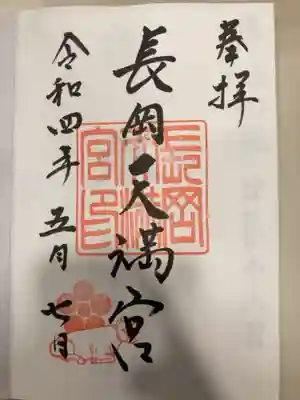 奉拝
長岡天満宮
令和四年五月七日
長岡天満宮印